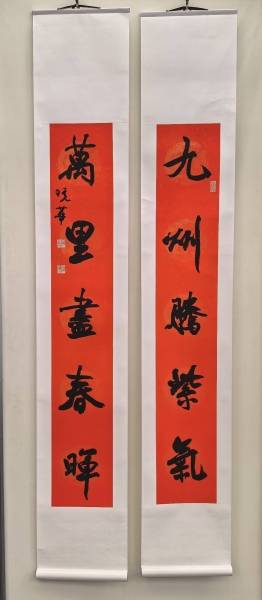 九州騰紫氣
萬里盡春暉
曉華